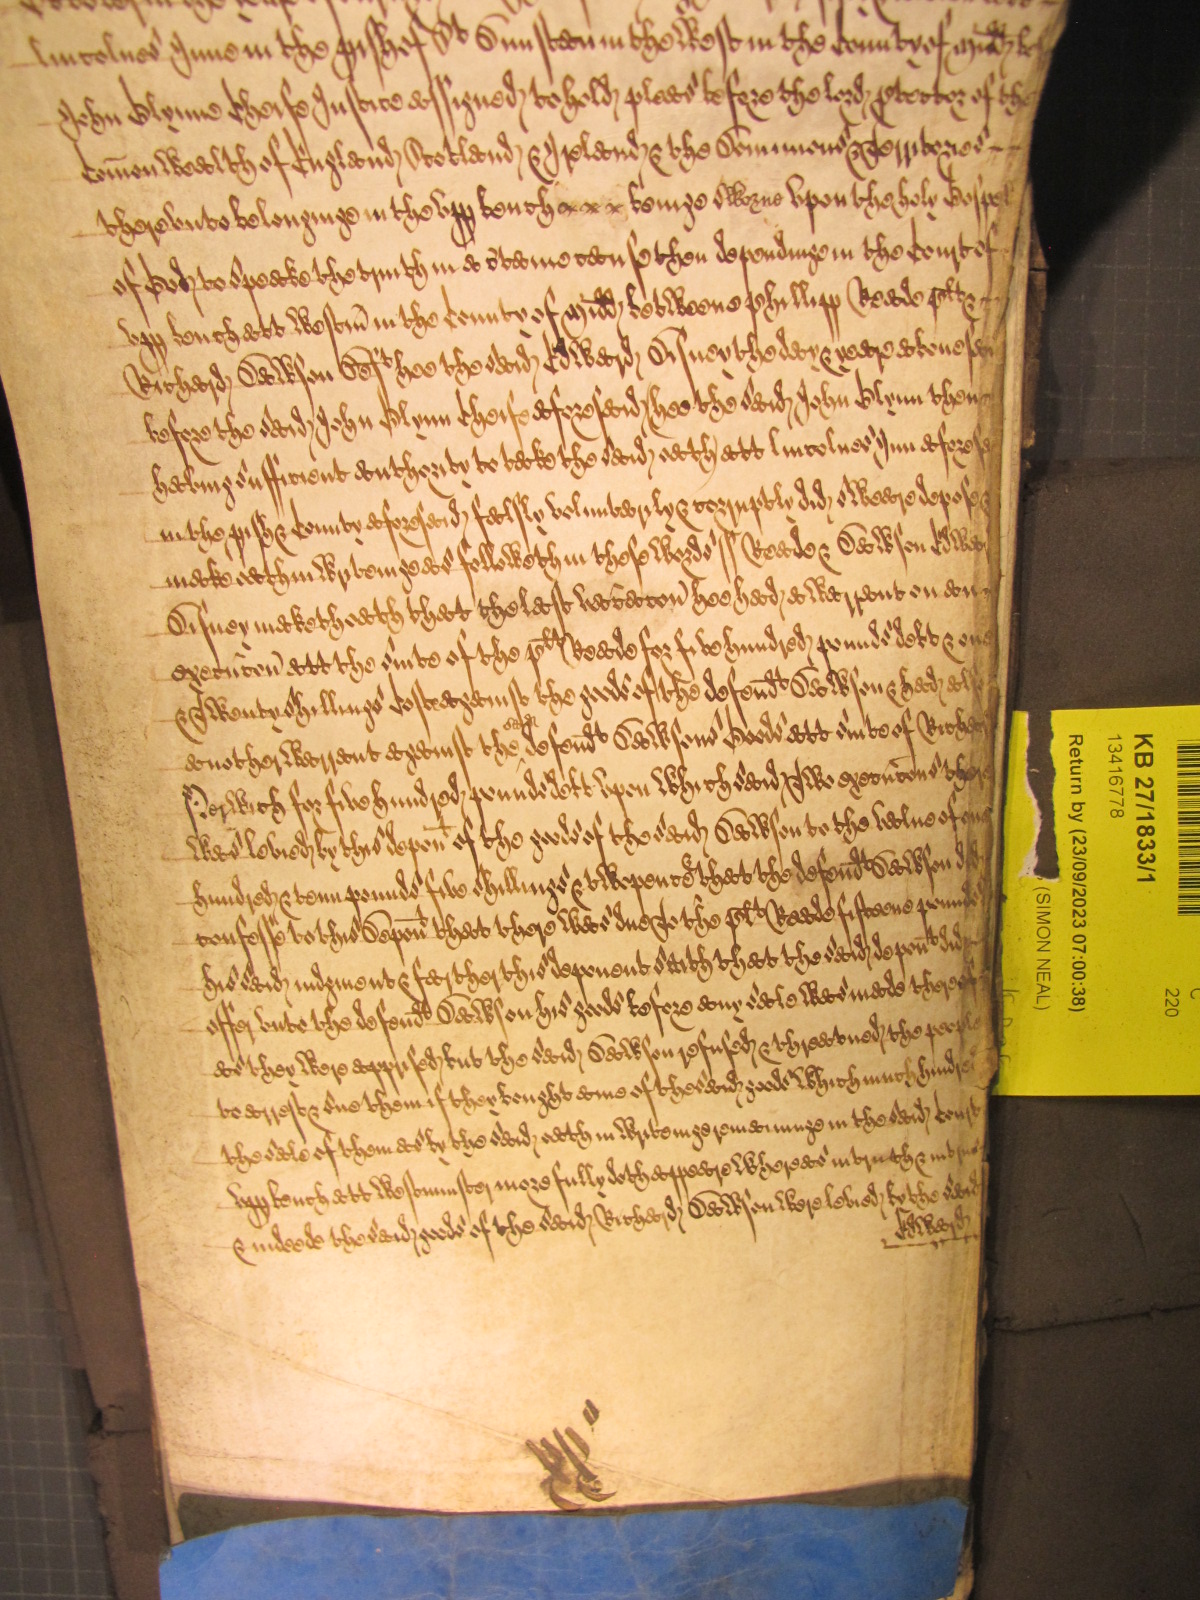 Lincolnes Inne in the pish of St Dunstan in the West in the County of Midd before
John Glynne Cheife Justice assigned to hold pleas before the lord Protector of the
Comonwealth of England Scotland & Ireland & the Dominions & Territories
thereunto belonginge in the upp bench beinge sworne upon the holy Gospell
of God to speake the truth in a certaine cause then dependinge in the Court of
upp bench att Westm in the County of Midd betweene Phillipp Reade plt &
Richard Dawson Deft hee the said Edward Disney the day & yeare above said
before the said John Glynn Cheife aforesaid hee the said John Glynn then
haveing sufficient authority to take the said oath att Lincolnes Inn aforesd
in the pish & County aforesaid falsly voluntarily & corruptly did sweare depose &
make oath in wryteinge as followeth in these words ss Reade & Dawson Edward
Disney maketh oath that the last vacacon hee had a warrant on an
execucon att the suite of the plt Reade for five hundred pounds debt & one
& Twenty shillings Cost against the goods of the defendt Dawson & had also
another warrant against the said defendt Dawsons Goods att suite of Richard
Norwich for five hundred pounds debt upon which said Two execucons there
was levied by this depont of the goods of the said Dawson to the value of one
hundred & tenn pounds five shillings & twopence & that the defendt Dawson did
confesse to this Depont that there was due to the plt Reade fifteene pounds
his said iudgment & farther this deponent saith that the said depont did
offer unto the defendt Dawson his goods before any sale was made thereof
as they were apprised but the said Dawson refused & threatned the people
to arrest & sue them if they bought anie of the said goods which much hindred
the sale of them as by the said oath in wryteinge remaininge in the said Court
upp bench att Westminster more fully doth appeare Whereas in truth & in
& indeede the said goods of the said Richard Dawson were levied by the said
Edward
KB 27/1833/1
13416778
Return by (23/09/2023 07:00:38)
(SIMON NEAL)
220
C